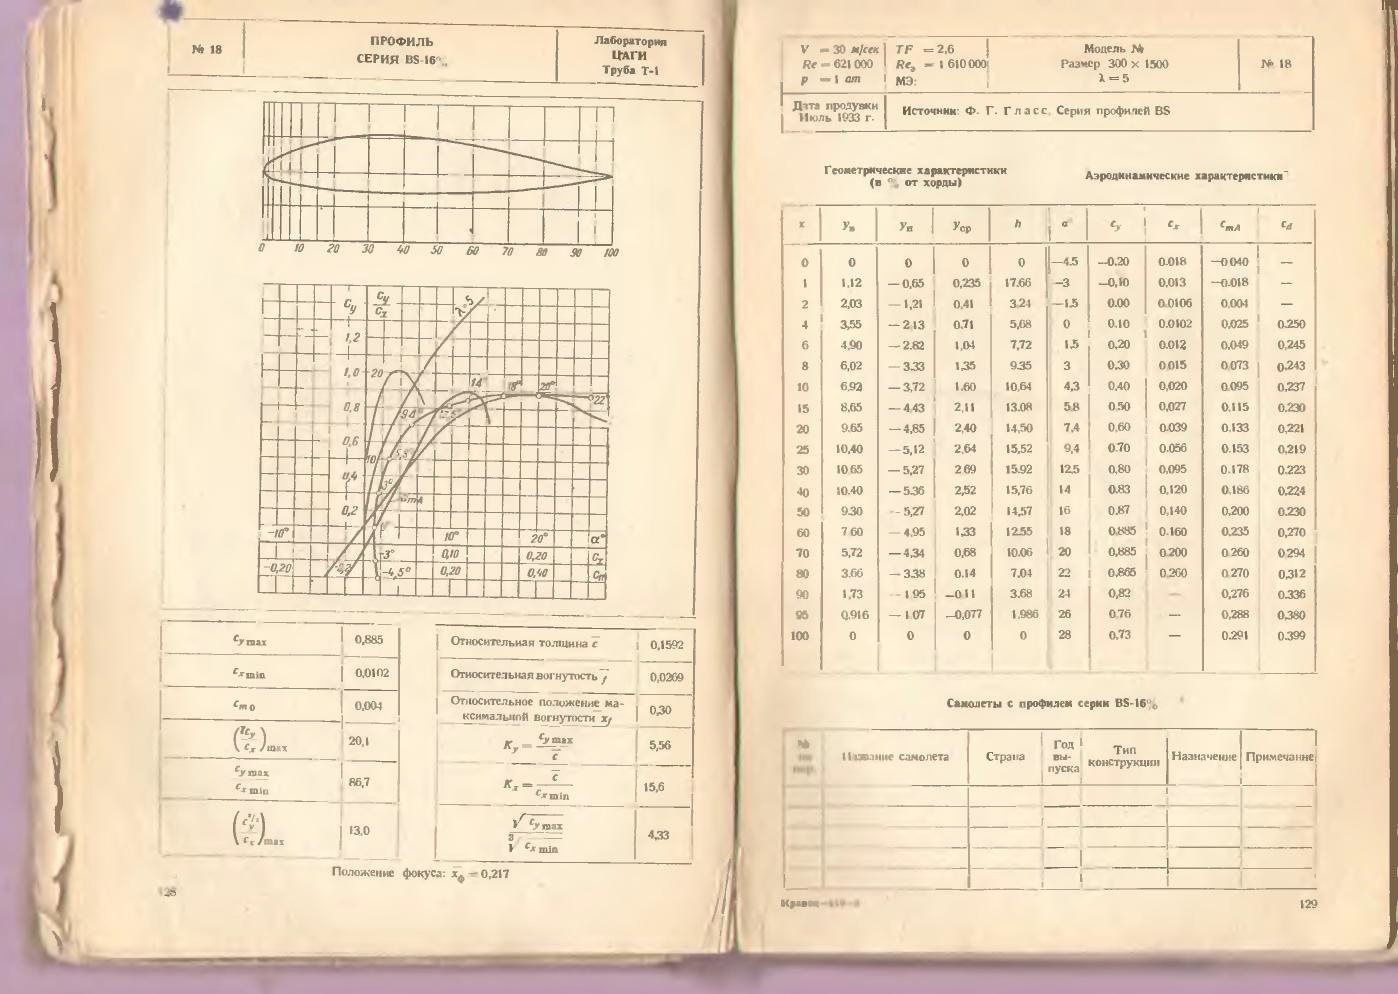 № 18
ПРОФИЛЬ
СЕРИЯ BS-16%
Лаборатория
ЦАГИ
Труба Т-1
0 10 20 30 40 50 60 70 80 90 100
Cy Cy/Cx λ=5
1,2
1,0 20 14 18° 20°
0,8 9,4 22°
0,6
10 5,8°
0,4 3°
0,2
-10° 10° 20° α°
-3° 0,10 0,20 Cx
-0,20 -0,2 -4,5° 0,20 0,40 Cm
cy max 0,885 Относительная толщина c̄ 0,1592
cx min 0,0102 Относительная вогнутость f̄ 0,0269
cm 0 0,004 Относительное положение ма-
ксимальной вогнутости x̄f 0,30
(cy/cx) max 20,1 Ky = cy max/c̄ 5,56
cy max/cx min 86,7 Kx = c̄/cx min 15,6
(cy^3/2/cx) max 13,0 √cy max/∛cx min 4,33
Положение фокуса: x̄ф = 0,217
V = 30 м/сек TF = 2,6 Модель №
Re = 621 000 Reэ = 1 610 000 Размер 300 × 1500 № 18
p = 1 ат МЭ: λ = 5
Дата продувки
Июль 1933 г. Источник: Ф. Г. Гласс. Серия профилей BS
Геометрические характеристики
(в % от хорды)
Аэродинамические характеристики
x yв yн yср h α° cy cx cmA cd
0 0 0 0 0 —4.5 —0.20 0.018 —0.040 —
1 1,12 —0,65 0,235 17.66 —3 —0,10 0,013 —0.018 —
2 2,03 —1,21 0,41 3.24 —1.5 0.00 0.0106 0,004 —
4 3,55 —2.13 0.71 5,68 0 0.10 0.0102 0,025 0.250
6 4,90 —2.82 1,04 7,72 1.5 0,20 0.012 0,049 0,245
8 6,02 —3.33 1,35 9.35 3 0,30 0.015 0,073 0,243
10 6,92 —3,72 1.60 10,64 4,3 0,40 0,020 0.095 0,237
15 8,65 —4.43 2,11 13.08 5.8 0.50 0,027 0.115 0,230
20 9.65 —4,85 2,40 14,50 7,4 0,60 0.039 0,133 0,221
25 10,40 —5,12 2,64 15,52 9,4 0.70 0.056 0.153 0,219
30 10.65 —5,27 2.69 15.92 12,5 0,80 0,095 0.178 0.223
40 10.40 —5.36 2,52 15,76 14 0.83 0,120 0.186 0,224
50 9.30 —5,27 2,02 14,57 16 0.87 0,140 0.200 0.230
60 7.60 —4.95 1,33 12.55 18 0.885 0.160 0,235 0,270
70 5,72 —4.34 0,68 10.06 20 0,885 0.200 0.260 0.294
80 3.66 —3.38 0.14 7.04 22 0,865 0,260 0.270 0,312
90 1,73 —1.95 —0.11 3.68 24 0,82 — 0,276 0.336
95 0,916 —1.07 —0,077 1.986 26 0.76 — 0,288 0.380
100 0 0 0 0 28 0.73 — 0.291 0.399
Самолеты с профилем серии BS-16%
Название самолета Страна Год
вы-
пуска Тип
конструкции Назначение Примечание
129